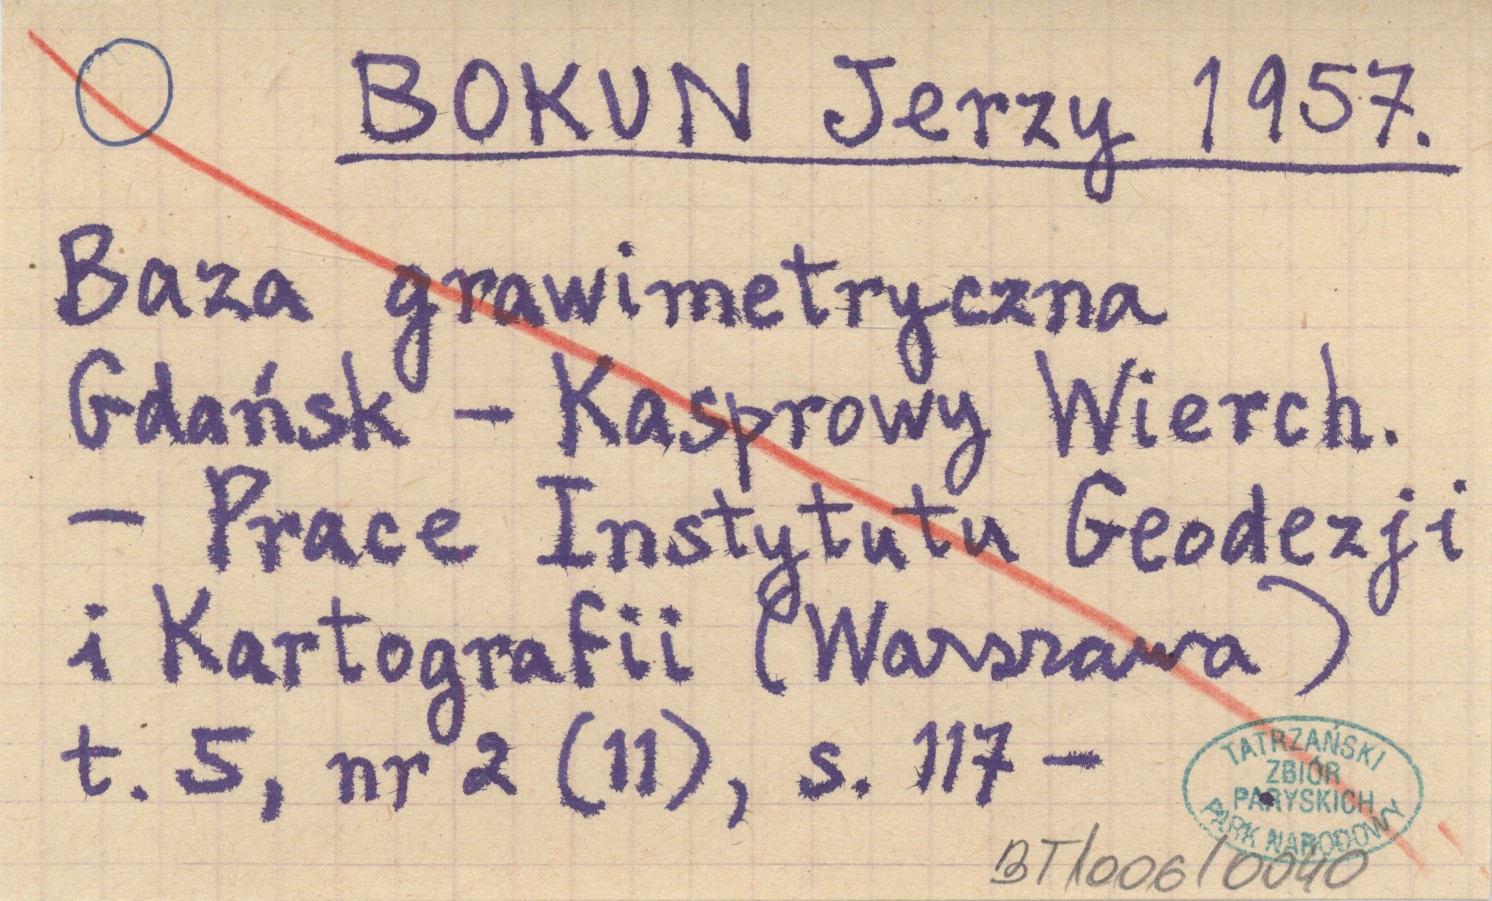 BOKUN Jerzy 1957.
Baza grawimetryczna
Gdańsk – Kasprowy Wierch.
– Prace Instytutu Geodezji
i Kartografii (Warszawa)
t. 5, nr 2 (11), s. 117 –
TATRZAŃSKI
ZBIÓR
PARYSKICH
PARK NARODOWY
BT/006/0040